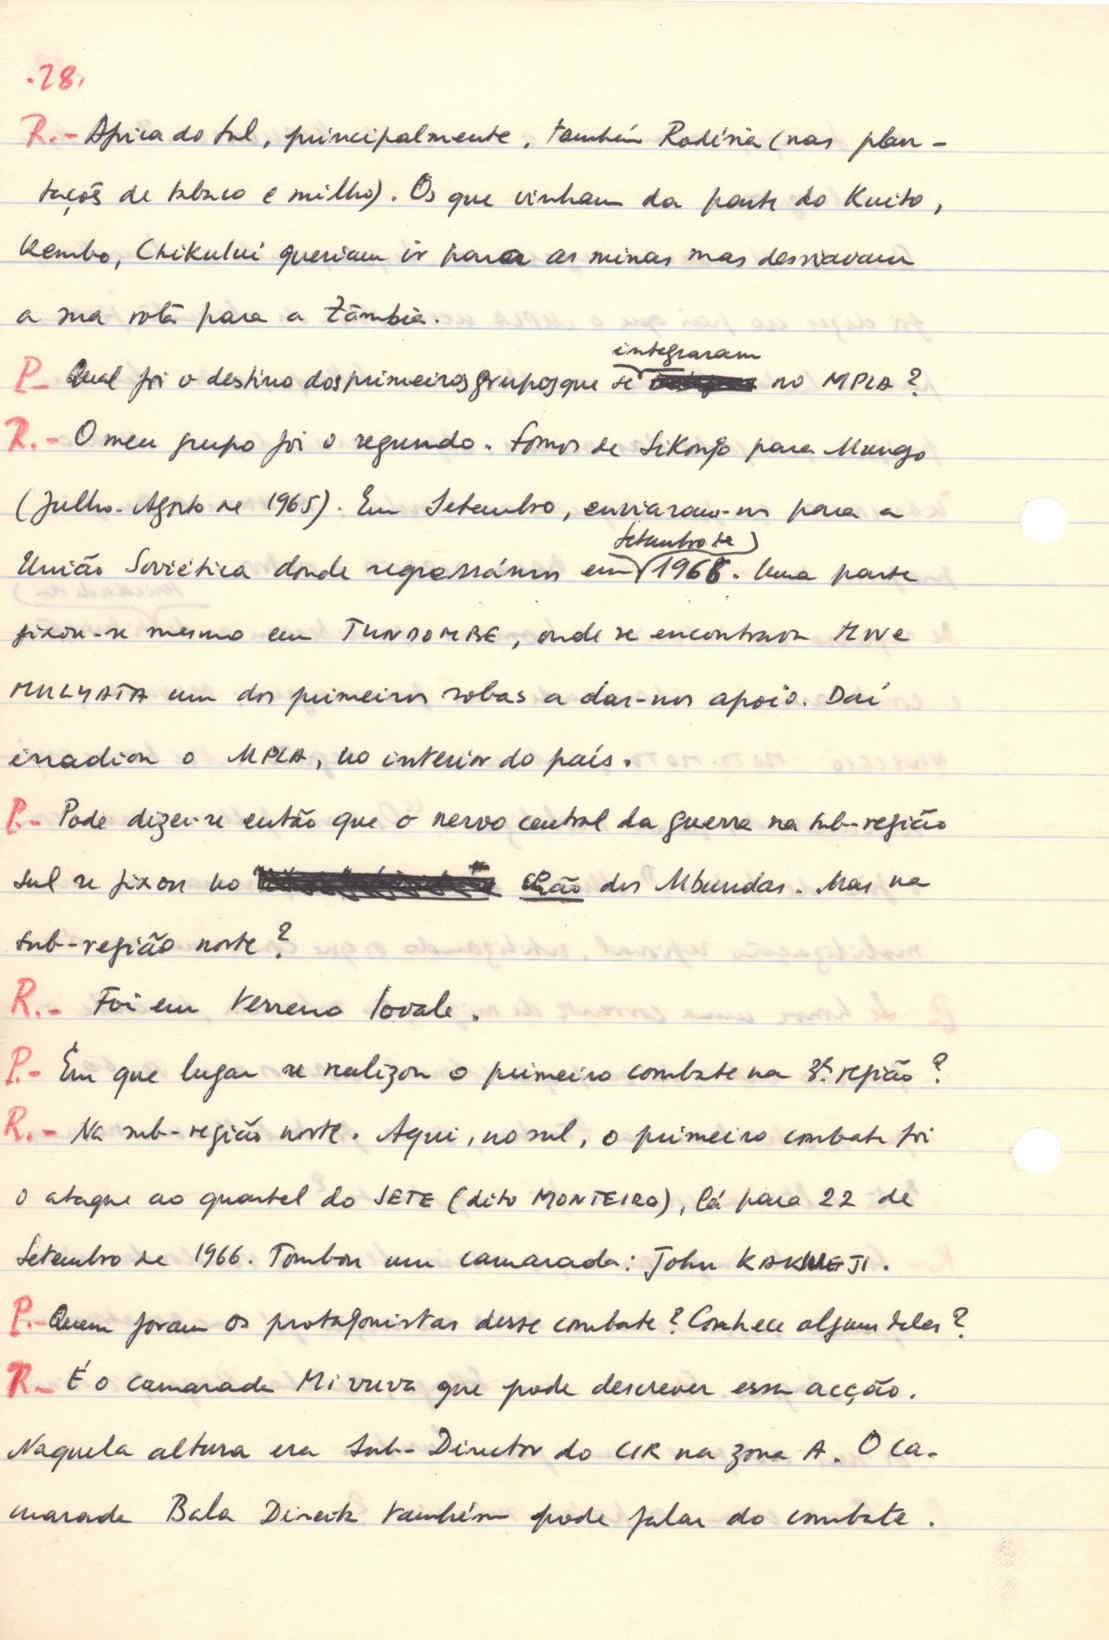 .28.
R.- Africa do Sul, principalmente, também Rodésia (nas plan-
tações de tabaco e milho). Os que vinham da parte do Kuito,
Kembo, Chikului queriam ir para as minas mas desviavam
a sua rota para a Zâmbia.
P- Qual foi o destino dos primeiros grupos que se integraram no MPLA?
R.- O meu grupo foi o segundo. Fomos de Sikongo para Mungo
(Julho-Agosto de 1965). Em Setembro, enviaram-nos para a
União Soviética donde regressámos em Setembro de 1966. Uma parte
fixou-se mesmo em TUNDOMBE, onde se encontrava
MULYATA um dos primeiros sobas a dar-nos apoio. Daí
irradiou o MPLA, no interior do país.
P.- Pode dizer-se então que o nervo central da guerra na sub-região
sul se fixou no chão dos Mbundas. Mas na
sub-região norte?
R.- Foi em terreno lovale.
P.- Em que lugar se realizou o primeiro combate na 3ª região?
R.- Na sub-região norte. Aqui, no sul, o primeiro combate foi
o ataque ao quartel do SETE (dito MONTEIRO), lá para 22 de
Setembro de 1966. Tombou um camarada: John KAKWEJI.
P.- Quem foram os protagonistas desse combate? Conhece alguns deles?
R.- É o camarada Mivuva que pode descrever essa acção.
Naquela altura era Sub-Director do CIR na zona A. O ca-
marada Bala Direita também pode falar do combate.